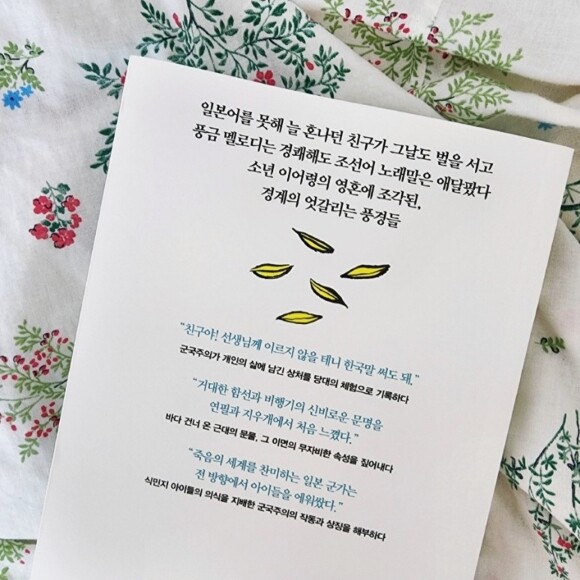 일본어를 못해 늘 혼나던 친구가 그날도 벌을 서고
풍금 멜로디는 경쾌해도 조선어 노래말은 애달팠다
소년 이어령의 영혼에 조각된,
경계의 엇갈리는 풍경들
"친구야! 선생님께 이르지 않을 테니 한국말 써도 돼."
군국주의가 개인의 삶에 남긴 상처를 당대의 체험으로 기록하다
"거대한 함선과 비행기의 신비로운 문명을
연필과 지우개에서 처음 느꼈다."
바다 건너 온 근대의 문물, 그 이면의 무자비한 속성을 짚어내다
"죽음의 세계를 찬미하는 일본 군가는
전 방향에서 아이들을 에워쌌다."
식민지 아이들의 의식을 지배한 군국주의의 작동과 상징을 해부하다